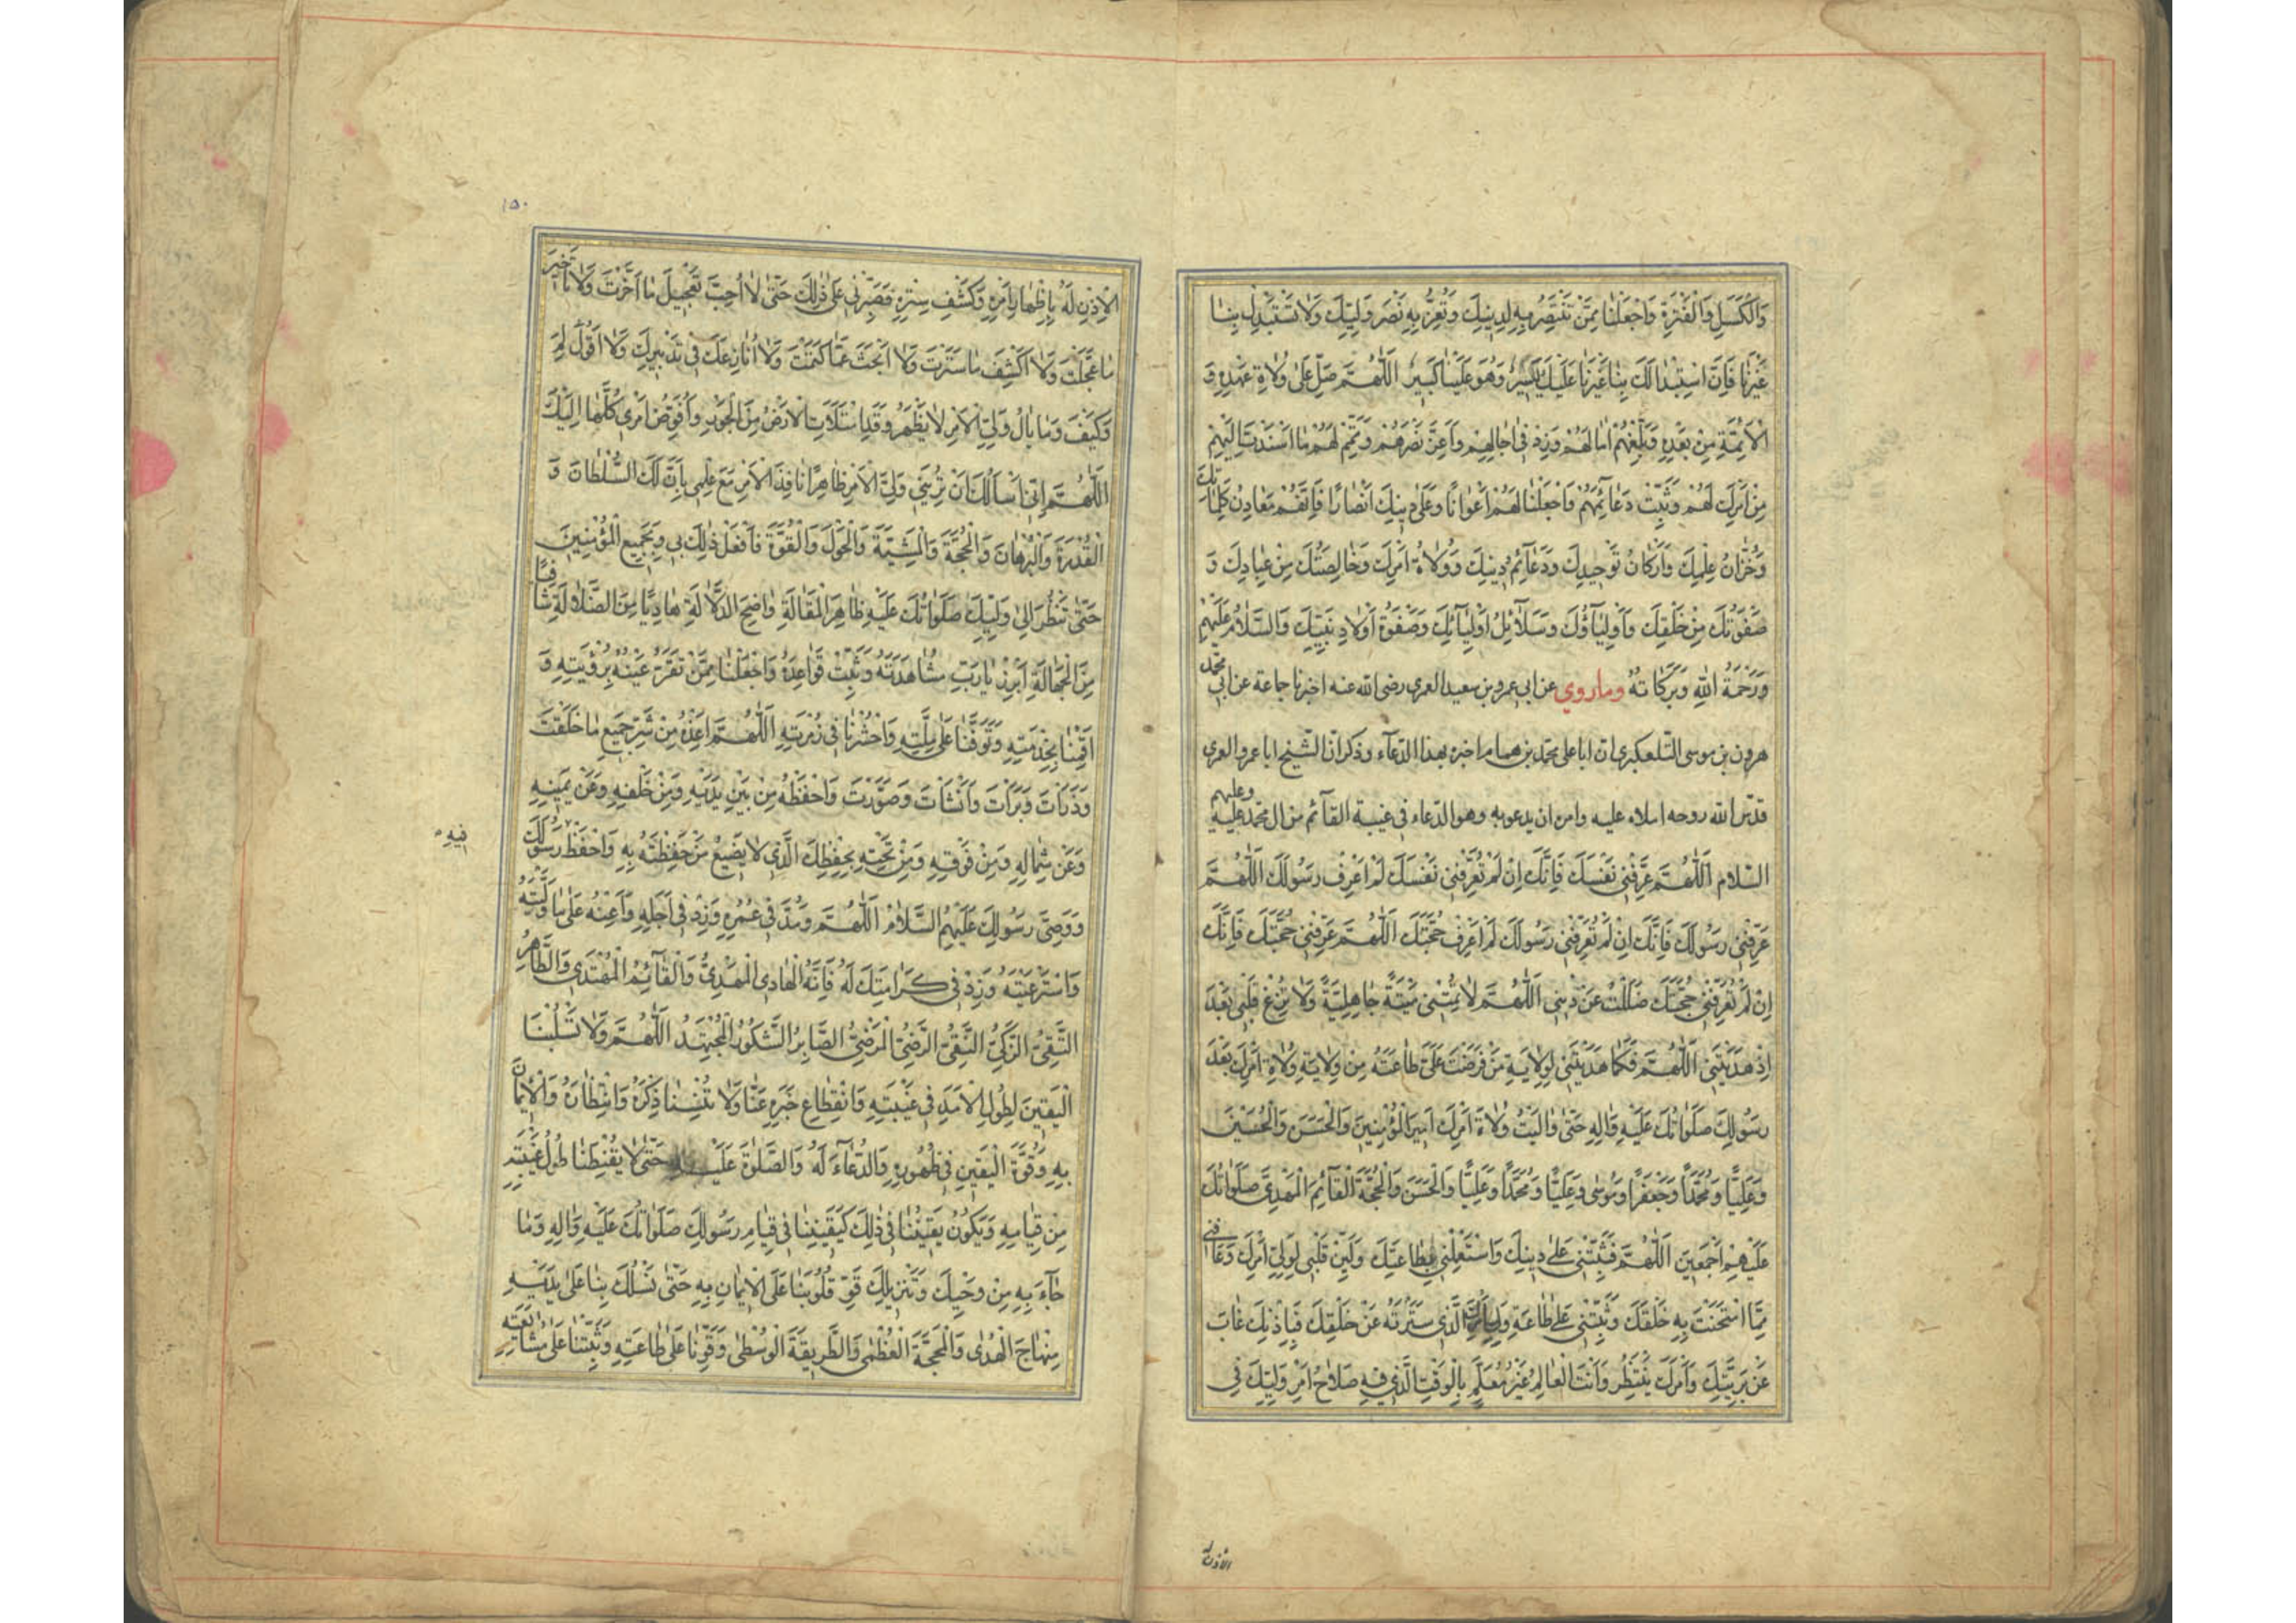 وَالْكَسَلِ وَالْفَتْرَةِ وَاجْعَلْنَا مِمَّنْ تَنْتَصِرُ بِهِ لِدِينِكَ وَتُعِزُّ بِهِ نَصْرَ وَلِيِّكَ وَلَا تَسْتَبْدِلْ بِنَا
غَيْرَنَا فَاِنَّ اسْتِبْدَالَكَ بِنَا غَيْرَنَا عَلَيْكَ يَسِيرٌ وَهُوَ عَلَيْنَا كَبِيرٌ اَللّٰهُمَّ صَلِّ عَلٰى وُلَاةِ عَهْدِهِ وَ
الْاَئِمَّةِ مِنْ بَعْدِهِ وَبَلِّغْهُمْ اٰمَالَهُمْ وَزِدْ فِى اٰجَالِهِمْ وَاَعِزَّ نَصْرَهُمْ وَتَمِّمْ لَهُمْ مَا اَسْنَدْتَ اِلَيْهِمْ
مِنْ اَمْرِكَ لَهُمْ وَثَبِّتْ دَعَائِمَهُمْ وَاجْعَلْنَا لَهُمْ اَعْوَانًا وَعَلٰى دِينِكَ اَنْصَارًا فَاِنَّهُمْ مَعَادِنُ كَلِمَاتِكَ
وَخُزَّانُ عِلْمِكَ وَاَرْكَانُ تَوْحِيدِكَ وَدَعَآئِمُ دِينِكَ وَوُلَاةُ اَمْرِكَ وَخَالِصَتُكَ مِنْ عِبَادِكَ وَ
صَفْوَتُكَ مِنْ خَلْقِكَ وَاَوْلِيَآؤُكَ وَسَلَآئِلُ اَوْلِيَآئِكَ وَصَفْوَةُ اَوْلَادِ نَبِيِّكَ وَالسَّلَامُ عَلَيْهِمْ
وَرَحْمَةُ اللّٰهِ وَبَرَكَاتُهُ وما روي عن ابى عمرو بن سعيد العمرى رضى الله عنه اخبرنا جماعة عن ابى محمد
هرون بن موسى التلعكبرى ان ابا على محمد بن همام اخبره بهذا الدعآء وذكر ان الشيخ ابا عمرو العمرى
قدس الله روحه املاه عليه وامره ان يدعو به وهو الدعاء فى غيبة القآئم من ال محمد عليه وعليهم
السلام اَللّٰهُمَّ عَرِّفْنِى نَفْسَكَ فَاِنَّكَ اِنْ لَمْ تُعَرِّفْنِى نَفْسَكَ لَمْ اَعْرِفْ رَسُولَكَ اَللّٰهُمَّ
عَرِّفْنِى رَسُولَكَ فَاِنَّكَ اِنْ لَمْ تُعَرِّفْنِى رَسُولَكَ لَمْ اَعْرِفْ حُجَّتَكَ اَللّٰهُمَّ عَرِّفْنِى حُجَّتَكَ فَاِنَّكَ
اِنْ لَمْ تُعَرِّفْنِى حُجَّتَكَ ضَلَلْتُ عَنْ دِينِى اَللّٰهُمَّ لَا تُمِتْنِى مِيتَةً جَاهِلِيَّةً وَلَا تُزِغْ قَلْبِى بَعْدَ
اِذْ هَدَيْتَنِى اَللّٰهُمَّ فَكَمَا هَدَيْتَنِى لِوِلَايَةِ مَنْ فَرَضْتَ عَلَىَّ طَاعَتَهُ مِنْ وِلَايَةِ وُلَاةِ اَمْرِكَ بَعْدَ
رَسُولِكَ صَلَوَاتُكَ عَلَيْهِ وَاٰلِهِ حَتّٰى وَالَيْتُ وُلَاةَ اَمْرِكَ اَمِيرَ الْمُؤْمِنِينَ وَالْحَسَنَ وَالْحُسَيْنَ
وَعَلِيًّا وَمُحَمَّدًا وَجَعْفَرًا وَمُوسٰى وَعَلِيًّا وَمُحَمَّدًا وَعَلِيًّا وَالْحَسَنَ وَالْحُجَّةَ الْقَآئِمَ الْمَهْدِىَّ صَلَوَاتُكَ
عَلَيْهِمْ اَجْمَعِينَ اَللّٰهُمَّ فَثَبِّتْنِى عَلٰى دِينِكَ وَاسْتَعْمِلْنِى بِطَاعَتِكَ وَلَيِّنْ قَلْبِى لِوَلِىِّ اَمْرِكَ وَعَافِنِى
مِمَّا امْتَحَنْتَ بِهِ خَلْقَكَ وَثَبِّتْنِى عَلٰى طَاعَةِ وَلِىِّ اَمْرِكَ الَّذِى سَتَرْتَهُ عَنْ خَلْقِكَ فَبِاِذْنِكَ غَابَ
عَنْ بَرِيَّتِكَ وَاَمْرَكَ يَنْتَظِرُ وَاَنْتَ الْعَالِمُ غَيْرُ مُعَلَّمٍ بِالْوَقْتِ الَّذِى فِيهِ صَلَاحُ اَمْرِ وَلِيِّكَ فِى
١٥٠
الْاِذْنِ لَهُ بِاِظْهَارِ اَمْرِهِ وَكَشْفِ سِتْرِهِ فَصَبِّرْنِى عَلٰى ذٰلِكَ حَتّٰى لَا اُحِبَّ تَعْجِيلَ مَا اَخَّرْتَ وَلَا تَاْخِيرَ
مَا عَجَّلْتَ وَلَا اَكْشِفَ مَا سَتَرْتَ وَلَا اَبْحَثَ عَمَّا كَتَمْتَ وَلَا اُنَازِعَكَ فِى تَدْبِيرِكَ وَلَا اَقُولَ لِمَ
وَكَيْفَ وَمَا بَالُ وَلِىِّ الْاَمْرِ لَا يَظْهَرُ وَقَدِ امْتَلَاَتِ الْاَرْضُ مِنَ الْجَوْرِ وَاُفَوِّضُ اَمْرِى كُلَّهَا اِلَيْكَ
اَللّٰهُمَّ اِنِّى اَسْاَلُكَ اَنْ تُرِيَنِى وَلِىَّ الْاَمْرِ ظَاهِرًا نَافِذَ الْاَمْرِ مَعَ عِلْمِى بِاَنَّ لَكَ السُّلْطَانَ وَ
الْقُدْرَةَ وَالْبُرْهَانَ وَالْحُجَّةَ وَالْمَشِيَّةَ وَالْحَوْلَ وَالْقُوَّةَ فَافْعَلْ ذٰلِكَ بِى وَبِجَمِيعِ الْمُؤْمِنِينَ
حَتّٰى نَنْظُرَ اِلٰى وَلِيِّكَ صَلَوَاتُكَ عَلَيْهِ ظَاهِرَ الْمَقَالَةِ وَاضِحَ الدَّلَالَةِ هَادِيًا مِنَ الضَّلَالَةِ شَافِيًا
مِنَ الْجَهَالَةِ اَبْرِزْ يَا رَبِّ مُشَاهَدَتَهُ وَثَبِّتْ قَوَاعِدَهُ وَاجْعَلْنَا مِمَّنْ تَقَرُّ عَيْنُهُ بِرُؤْيَتِهِ وَ
اَقِمْنَا بِخِدْمَتِهِ وَتَوَفَّنَا عَلٰى مِلَّتِهِ وَاحْشُرْنَا فِى زُمْرَتِهِ اَللّٰهُمَّ اَعِذْهُ مِنْ شَرِّ جَمِيعِ مَا خَلَقْتَ
وَذَرَاْتَ وَبَرَاْتَ وَاَنْشَاْتَ وَصَوَّرْتَ وَاحْفَظْهُ مِنْ بَيْنِ يَدَيْهِ وَمِنْ خَلْفِهِ وَعَنْ يَمِينِهِ
وَعَنْ شِمَالِهِ وَمِنْ فَوْقِهِ وَمِنْ تَحْتِهِ بِحِفْظِكَ الَّذِى لَا يَضِيعُ مَنْ حَفِظْتَهُ بِهِ وَاحْفَظْ رَسُولَكَ
فِيهِ
وَوَصِىَّ رَسُولِكَ عَلَيْهِمُ السَّلَامُ اَللّٰهُمَّ وَمُدَّ فِى عُمُرِهِ وَزِدْ فِى اَجَلِهِ وَاَعِنْهُ عَلٰى مَا وَلَّيْتَهُ
وَاسْتَرْعَيْتَهُ وَزِدْ فِى كَرَامَتِكَ لَهُ فَاِنَّهُ الْهَادِى الْمَهْدِىُّ وَالْقَآئِمُ الْمُهْتَدِى وَالطَّاهِرُ
التَّقِىُّ الزَّكِىُّ النَّقِىُّ الرَّضِىُّ الْمَرْضِىُّ الصَّابِرُ الشَّكُورُ الْمُجْتَهِدُ اَللّٰهُمَّ وَلَا تَسْلُبْنَا
الْيَقِينَ لِطُولِ الْاَمَدِ فِى غَيْبَتِهِ وَانْقِطَاعِ خَبَرِهِ عَنَّا وَلَا تُنْسِنَا ذِكْرَهُ وَانْتِظَارَهُ وَالْاِيمَانَ
بِهِ وَقُوَّةَ الْيَقِينِ فِى ظُهُورِهِ وَالدُّعَآءَ لَهُ وَالصَّلٰوةَ عَلَيْهِ حَتّٰى لَا يُقَنِّطَنَا طُولُ غَيْبَتِهِ
مِنْ قِيَامِهِ وَيَكُونَ يَقِينُنَا فِى ذٰلِكَ كَيَقِينِنَا فِى قِيَامِ رَسُولِكَ صَلَوَاتُكَ عَلَيْهِ وَاٰلِهِ وَمَا
جَآءَ بِهِ مِنْ وَحْيِكَ وَتَنْزِيلِكَ قَوِّ قُلُوبَنَا عَلَى الْاِيمَانِ بِهِ حَتّٰى تَسْلُكَ بِنَا عَلٰى يَدَيْهِ
مِنْهَاجَ الْهُدٰى وَالْمَحَجَّةَ الْعُظْمٰى وَالطَّرِيقَةَ الْوُسْطٰى وَقَوِّنَا عَلٰى طَاعَتِهِ وَثَبِّتْنَا عَلٰى مُشَايَعَتِهِ